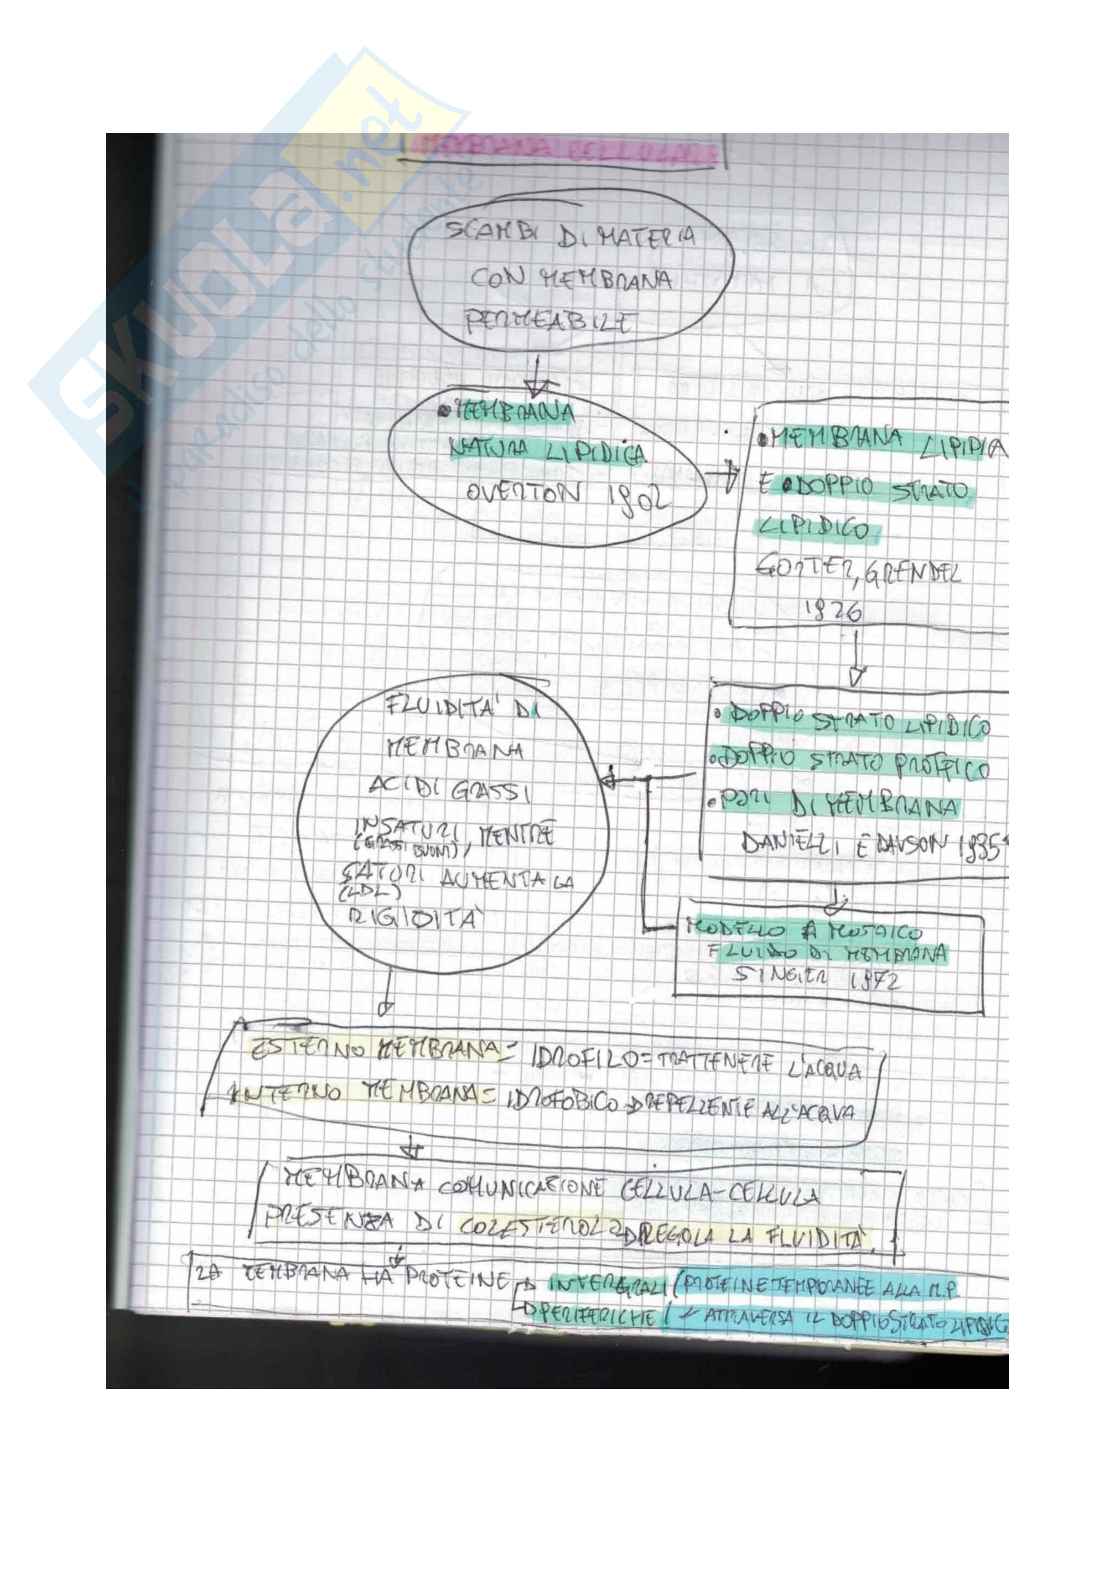 MEMBRANA CELLULAR
SCAMBI DI MATERIA
CON MEMBRANA
PERMEABILE
• MEMBRANA
NATURA LIPIDICA
OVERTON 1902
• MEMBRANA LIPIDIA
E • DOPPIO STRATO
LIPIDICO
GORTER, GRENDEL
1926
• DOPPIO STRATO LIPIDICO
• DOPPIO STRATO PROTEICO
• PORI DI MEMBRANA
DANIELLI E DAVSON 1935
MODELLO A MOSAICO
FLUIDO DI MEMBRANA
SINGER 1972
FLUIDITA' DI
MEMBRANA
ACIDI GRASSI
INSATURI, MENTRE
(GRASSI BUONI)
SATURI AUMENTA LA
(LDL)
RIGIDITA'
ESTERNO MEMBRANA = IDROFILO = TRATTENERE L'ACQUA
INTERNO MEMBRANA = IDROFOBICO → REPELLENTE ALL'ACQUA
MEMBRANA COMUNICAZIONE CELLULA-CELLULA
PRESENZA DI COLESTEROLO → REGOLA LA FLUIDITA'
LA MEMBRANA HA PROTEINE → INTERGRALI (PROTEINE TEMPORANEE ALLA M.P.
→ PERIFERICHE ATTRAVERSA IL DOPPIO STRATO
SKUOLA.net
il paradiso dello studente